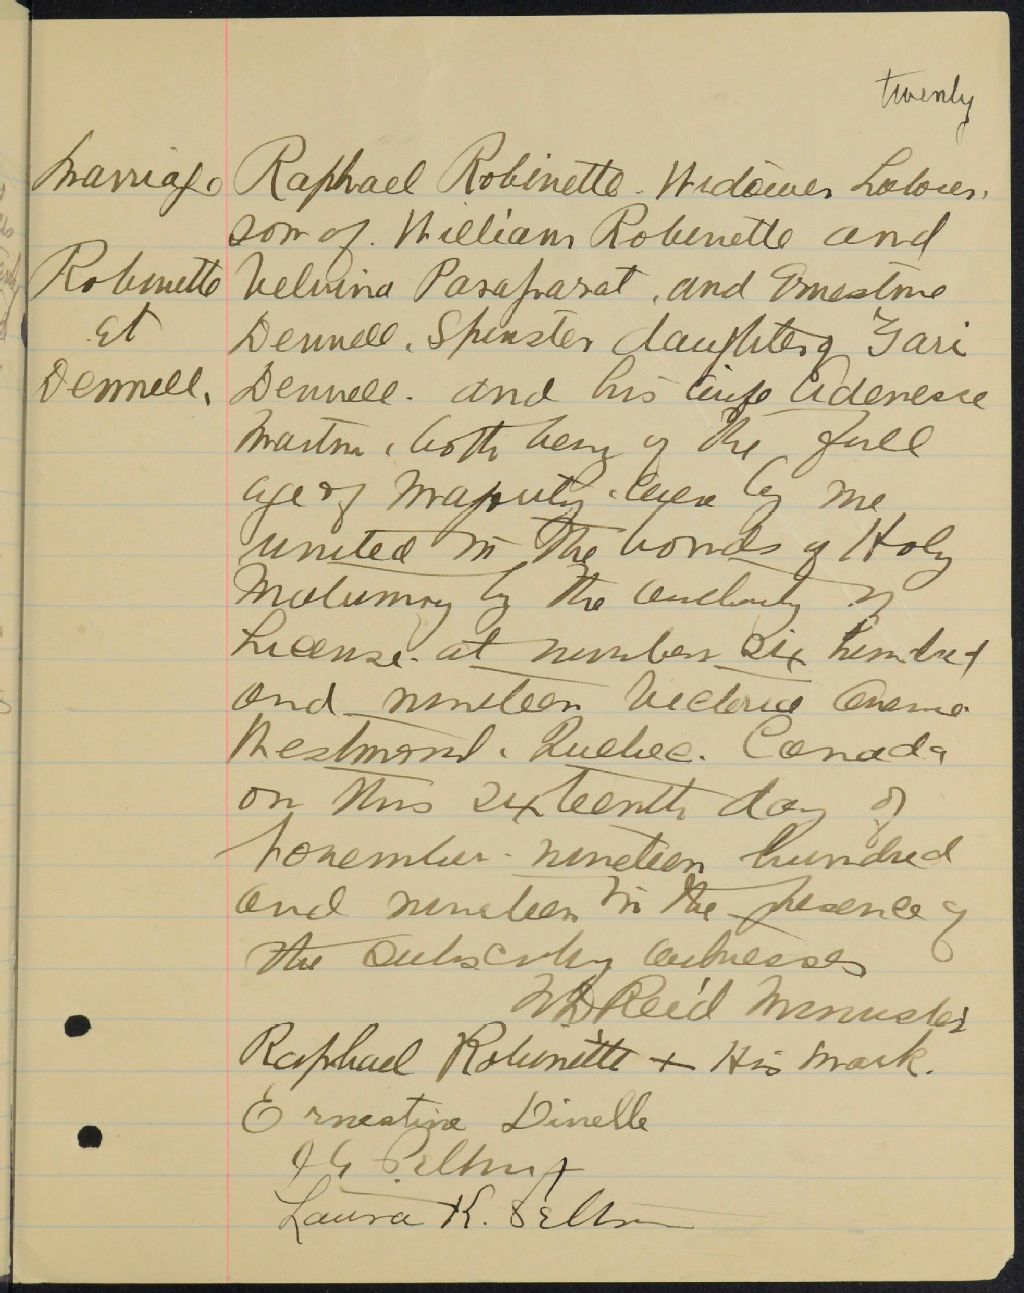 twenty
Marriage Raphael Robinette. Widower Labourer.
son of. William Robinette and
Robinette Velvina Paraparat, and Ernestine
et Dennell, Spinster daughter of Gari
Dennell. Dennell. and his wife Adenesse
Martin, both being of the full
age of Majority, were by me
united in the bonds of Holy
Matrimony by the authority of
License. at number six hundred
and nineteen Victoria Avenue
Westmount. Quebec. Canada
on this sixteenth day of
November. nineteen hundred
and nineteen in the presence of
the subscribing witnesses
WD Reid Minister
Raphael Robinette + His Mark.
Ernestine Dinelle
Laura K.